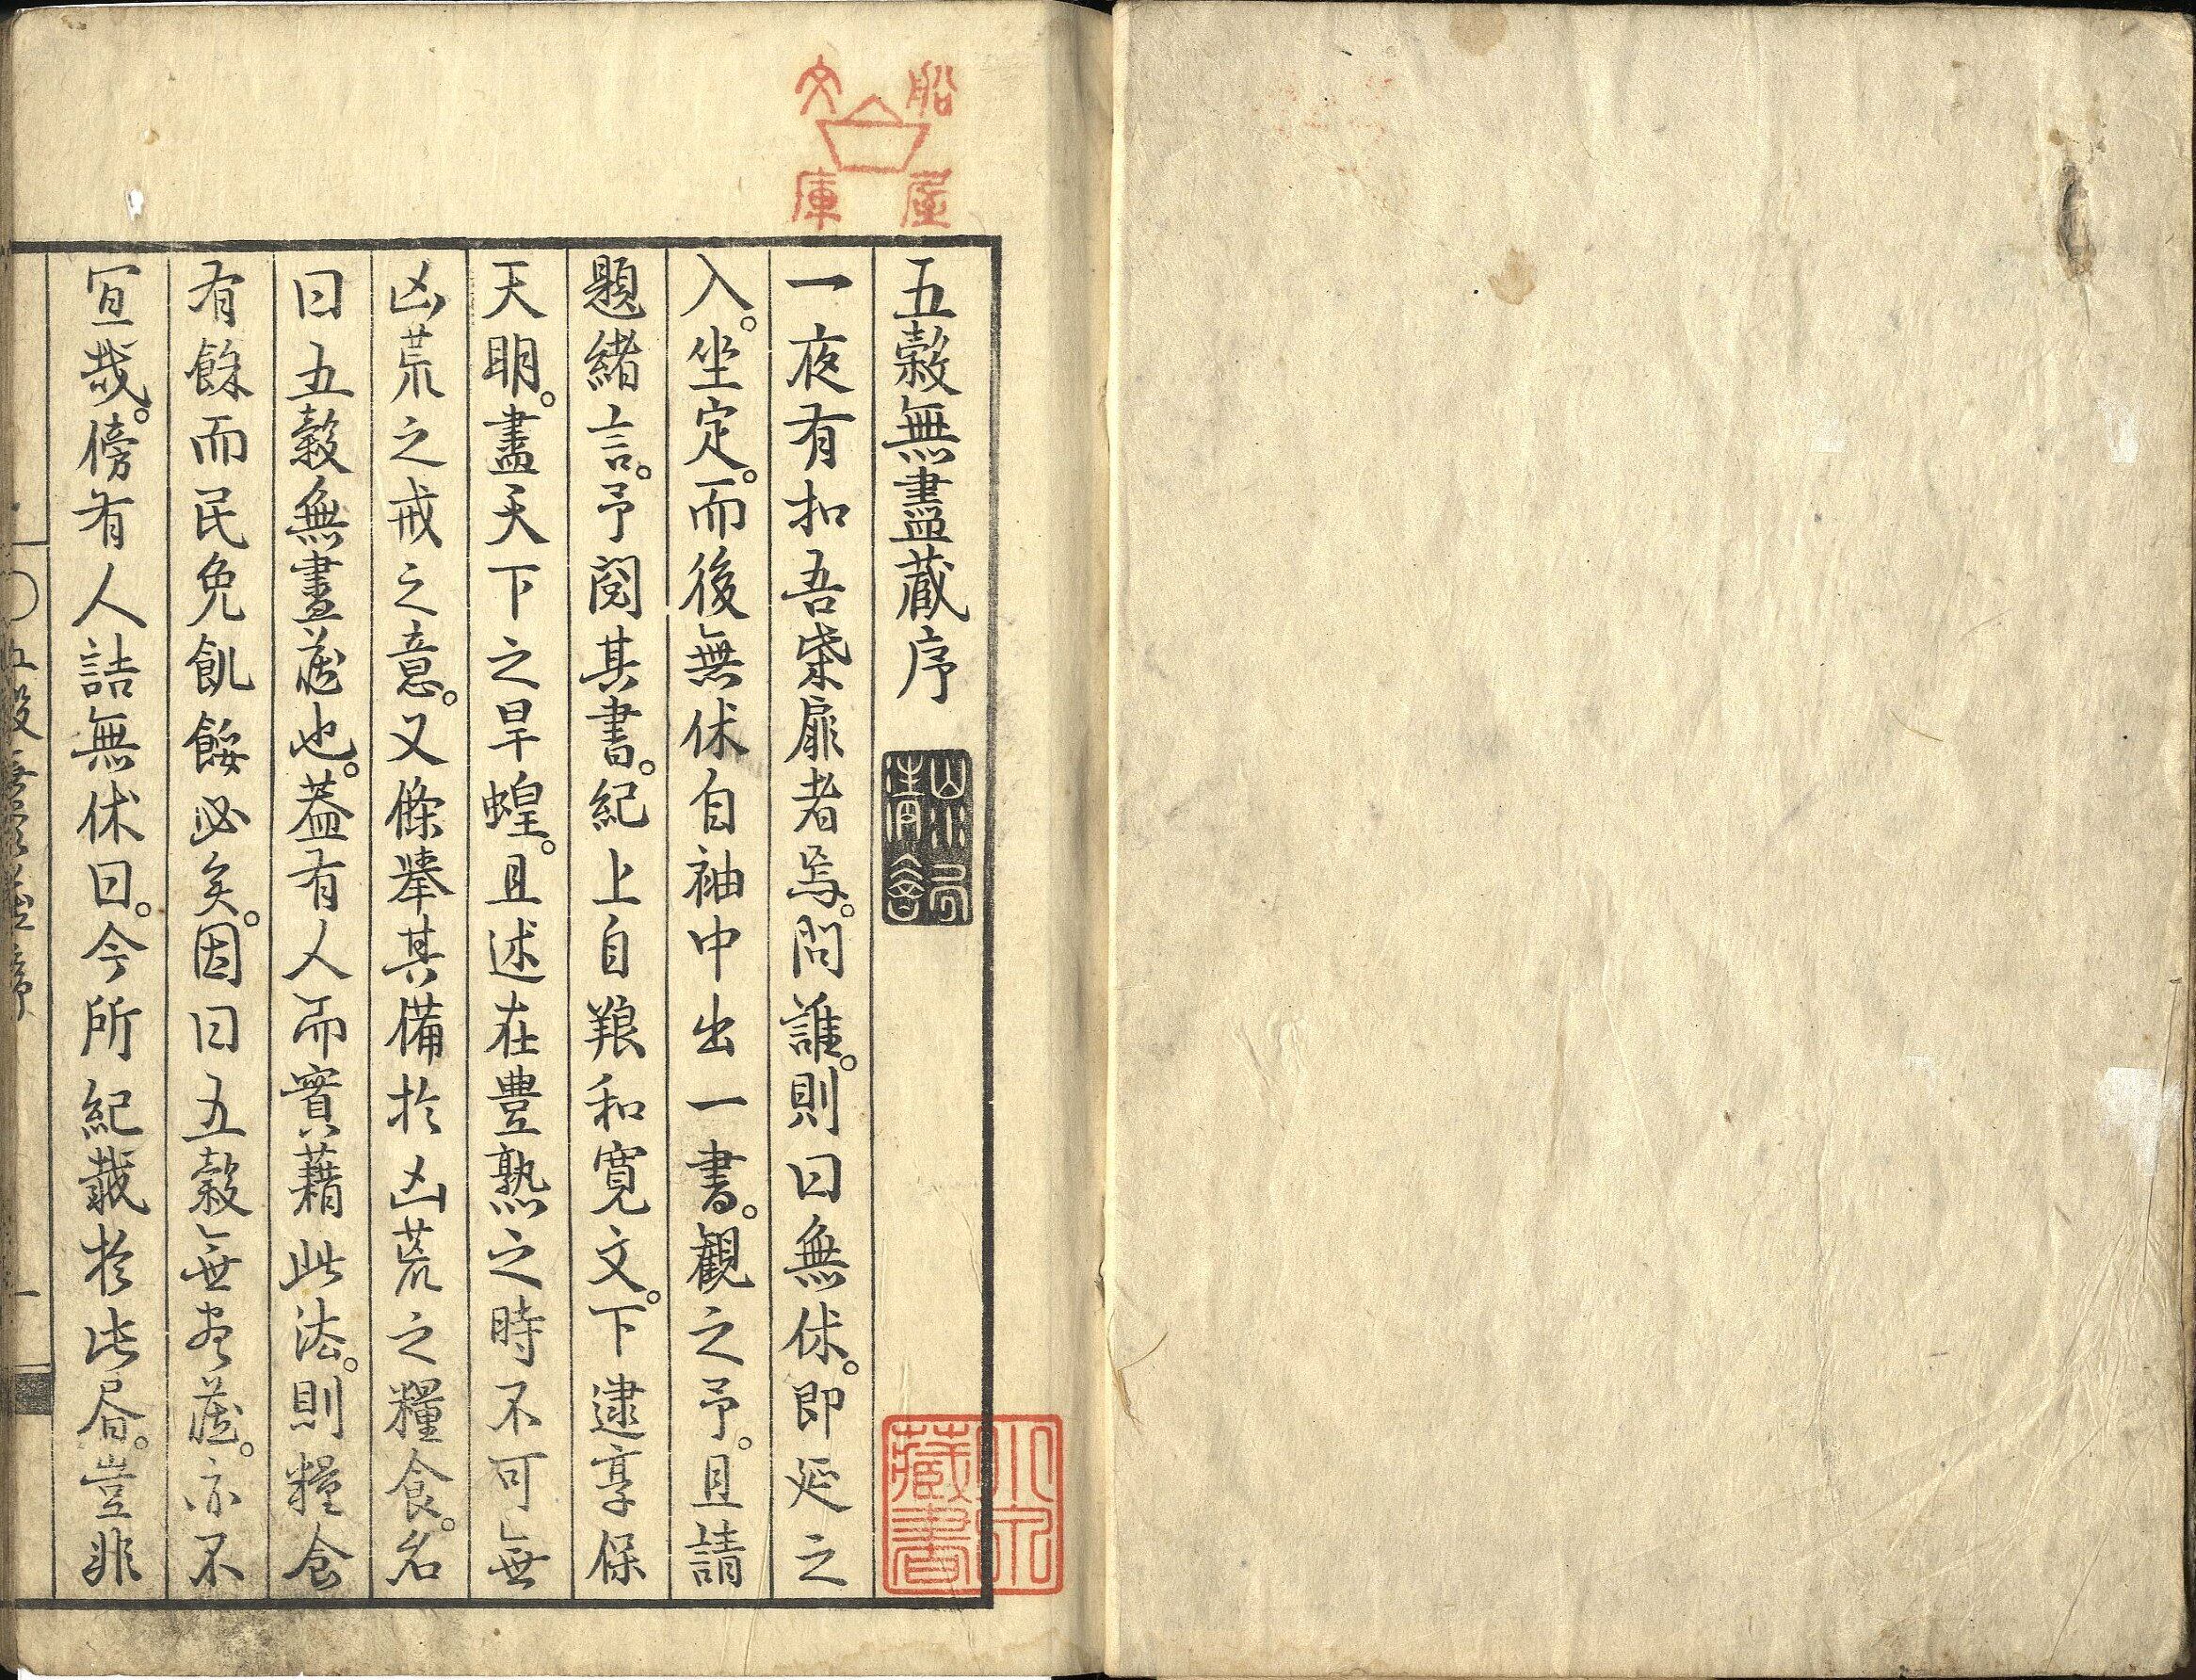 船屋文庫
五穀無盡藏序
一夜有扣吾柴扉者焉。問誰。則曰無休。即延之
入。坐定。而後無休自袖中出一書。觀之予。且請
題緒言。予閱其書。紀上自艱和寬文。下逮享保
天明。盡天下之旱蝗。且述在豊熟之時不可無
凶荒之戒之意。又條擧其備於凶荒之糧食。名
曰五穀無盡藏也。蓋有人而實藉此法。則糧食
有餘而民免飢餒必矣。因曰五穀無尽藏。亦不
宜哉。傍有人詰無休曰。今所紀載於此昏。豈非
五穀無尽藏序
一
藏書